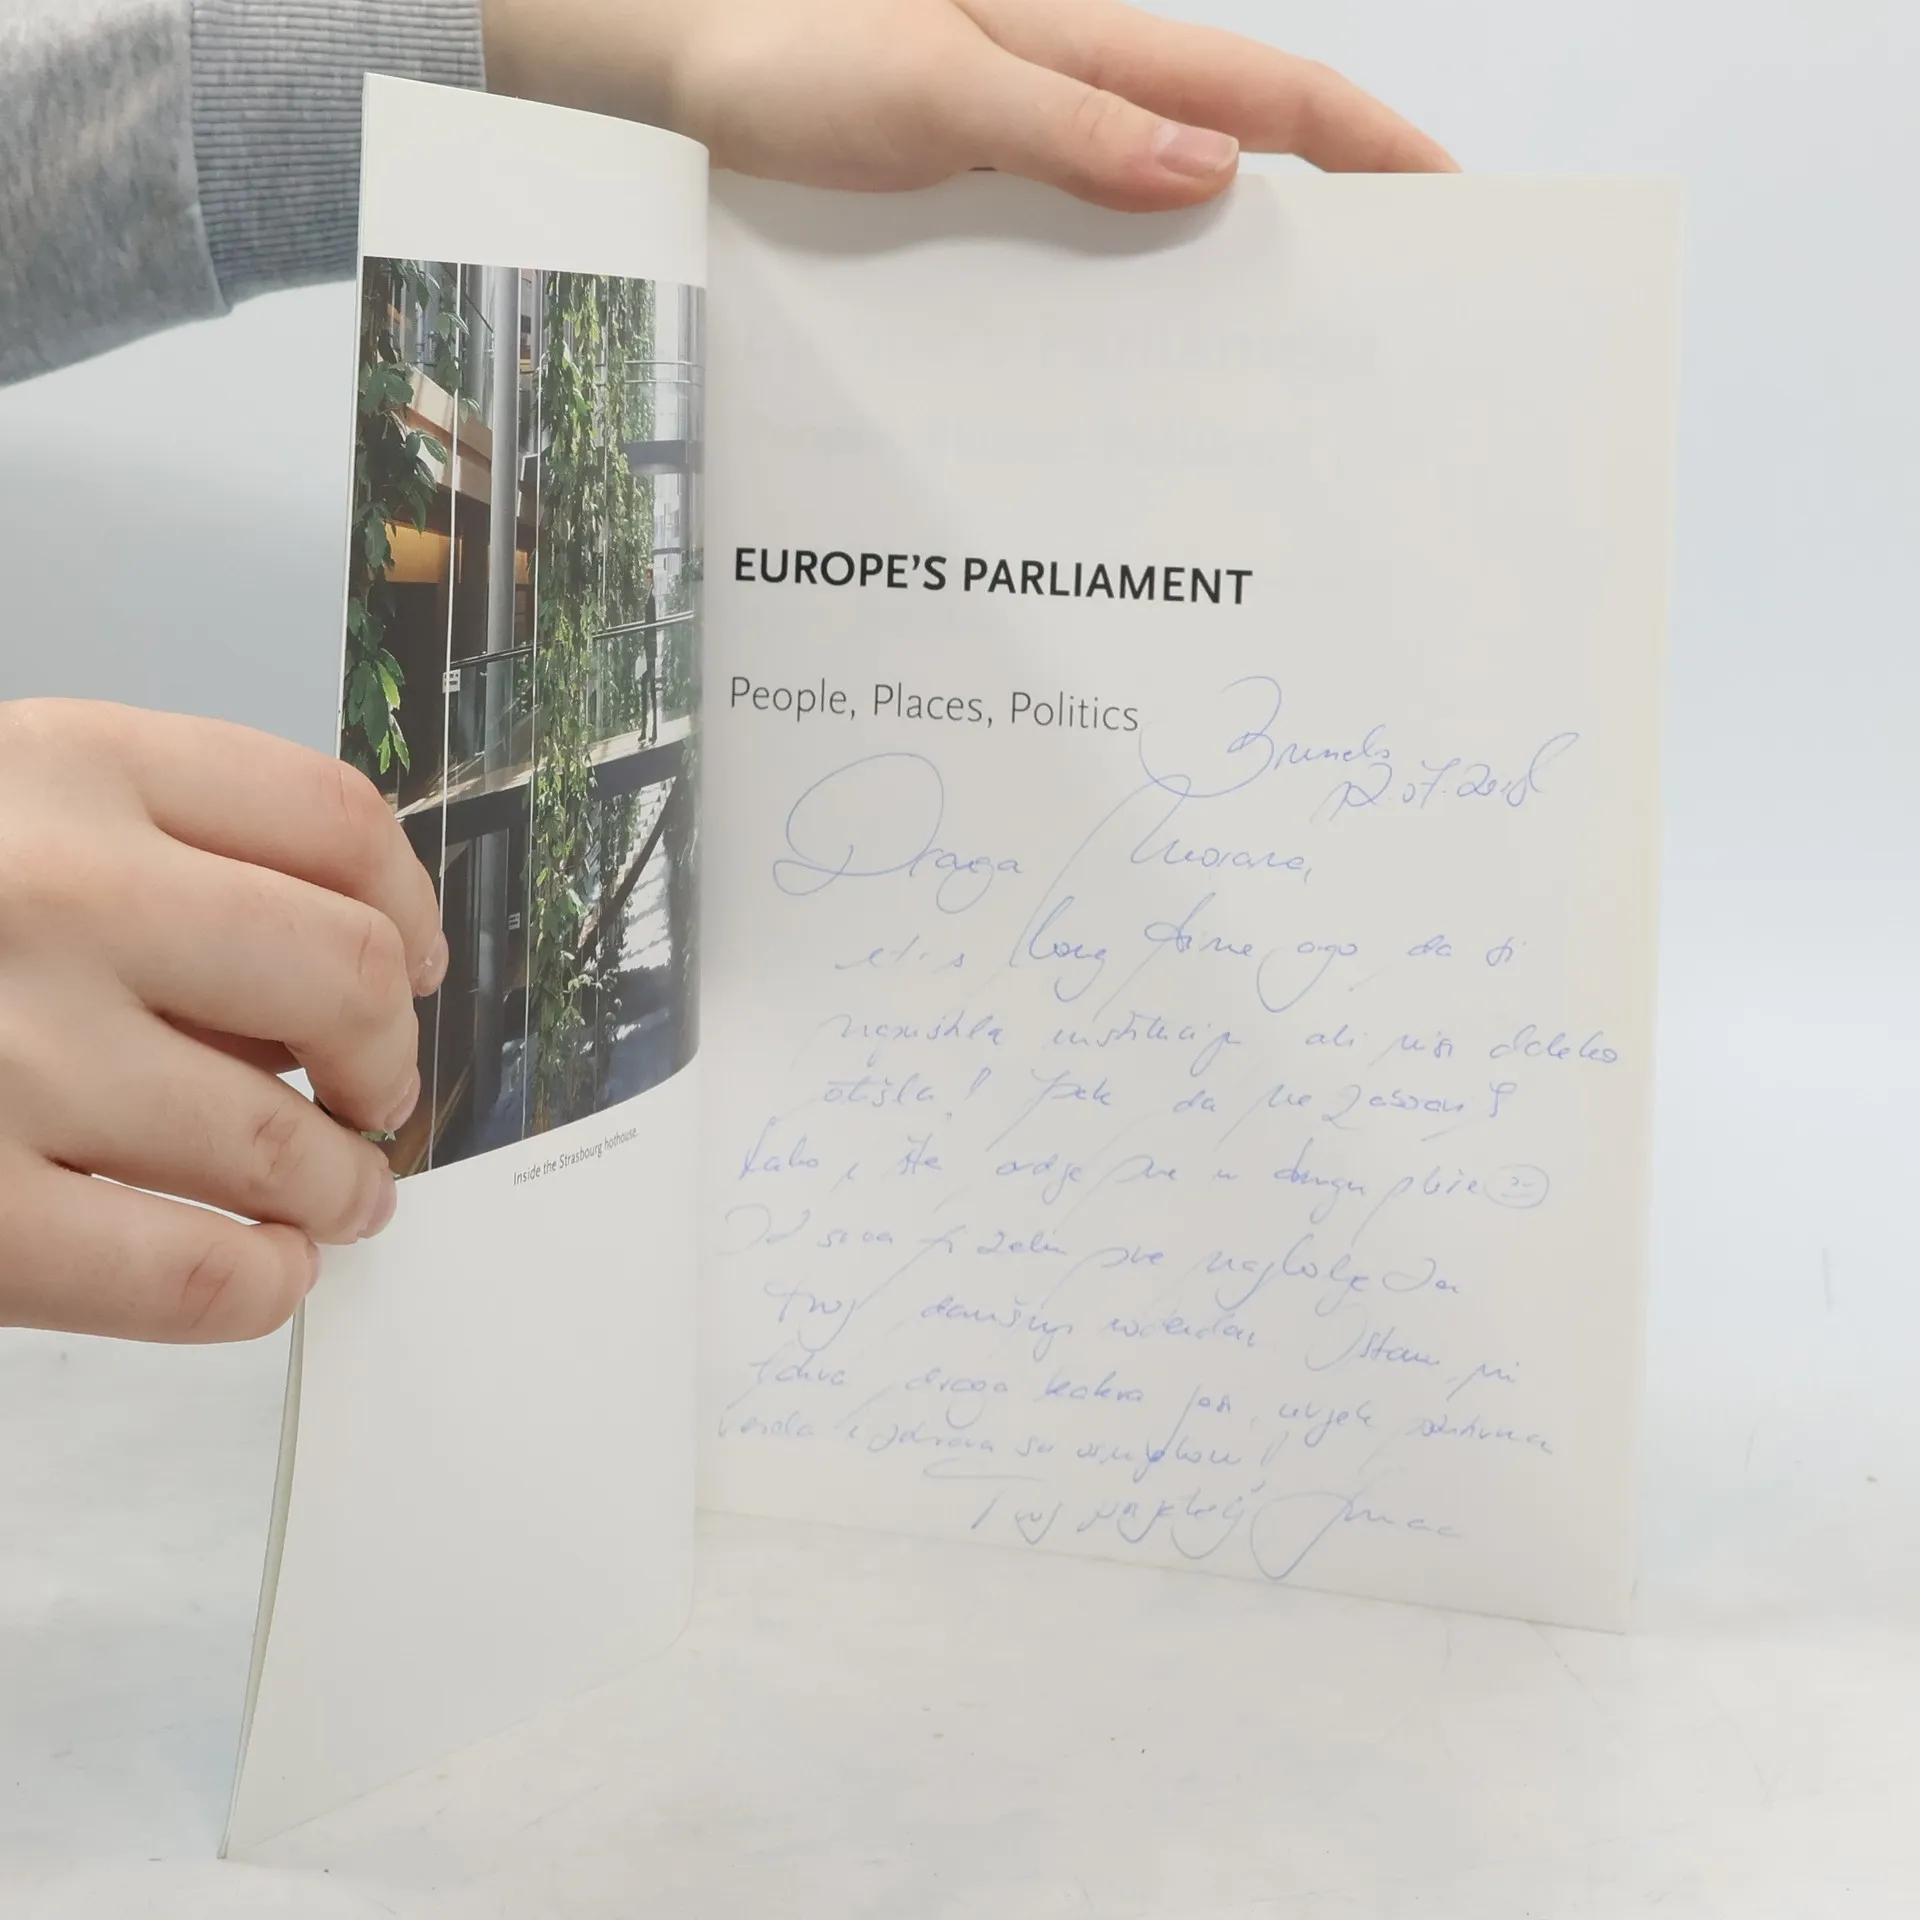 Inside the Strasbourg hothouse.
EUROPE'S PARLIAMENT
People, Places, Politics
Brussels
12.07.2018
Draga Morana,
it's long time ago da ti
napustila institucije ali nisi daleko
otišla! Ipak da ne zaboraviš
kako i šta ovdje sve u drugu pliće
Od srca ti želim sve najbolje za
tvoj današnji rođendan. Ostani mi
takva draga kakva jesi, uvijek pozitivna
vesela i zdrava sa osmjehom!
Tvoj prijatelj